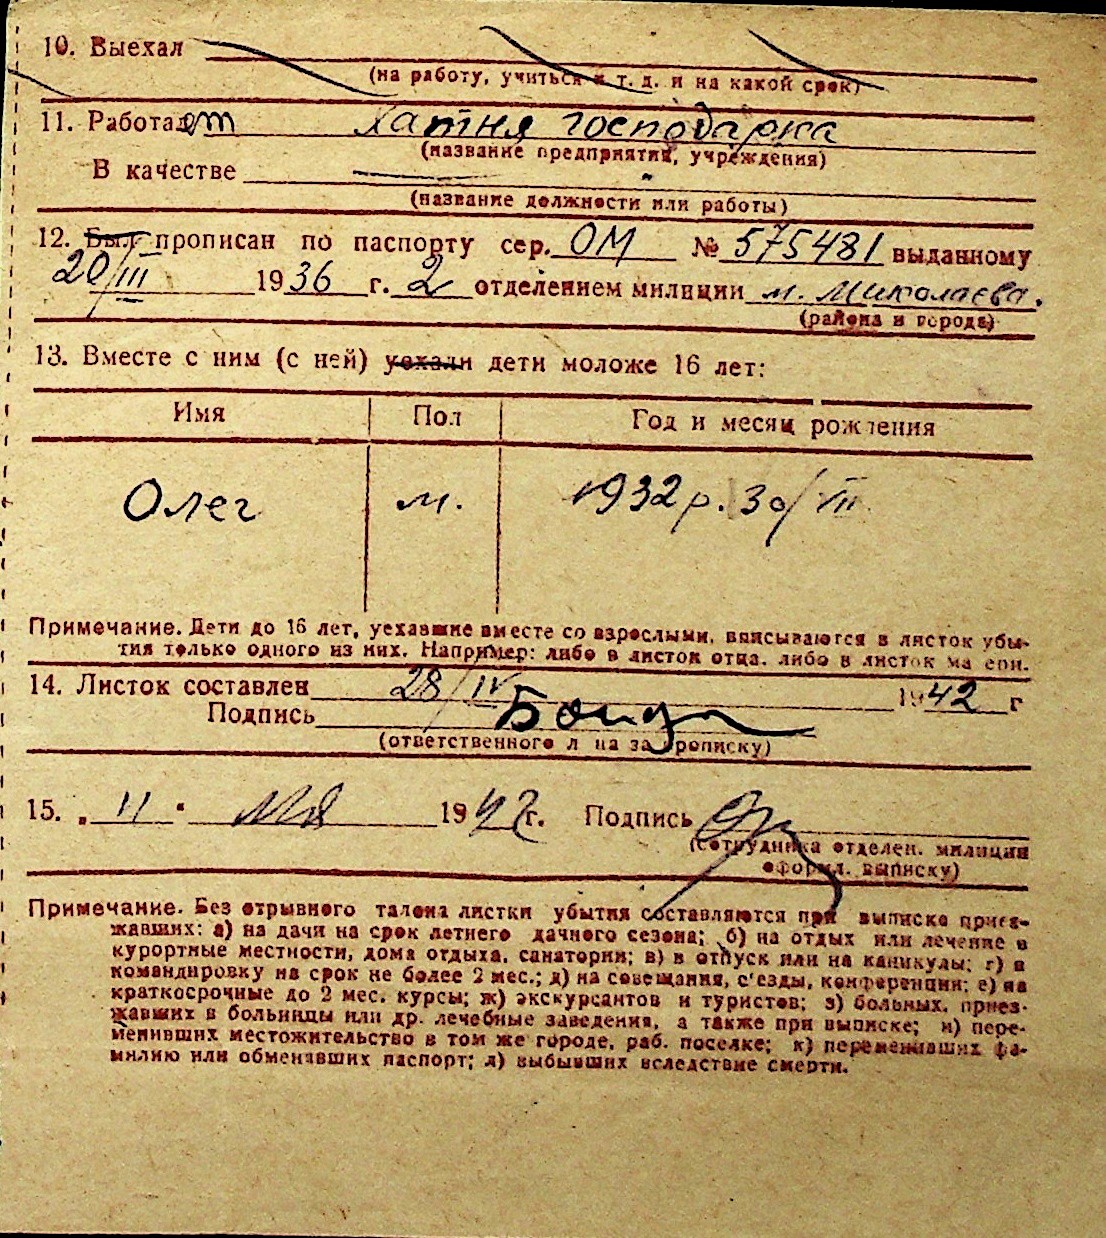 10. Выехал
(на работу, учиться и т. д. и на какой срок)
11. Работает Хатня господарка
(название предприятия, учреждения)
В качестве
(название должности или работы)
12. Был прописан по паспорту сер. ОМ № 575481 выданному
20/III 1936 г. 2 отделением милиции м. Миколаєва.
(района и города)
13. Вместе с ним (с ней) уехали дети моложе 16 лет:
Имя Пол Год и месяц рождения
Олег м. 1932 р. 30/VII
Примечание. Дети до 16 лет, уехавшие вместе со взрослыми, вписываются в листок убы-
тия только одного из них. Например: либо в листок отца, либо в листок матери.
14. Листок составлен 28/IV 1942 г
Подпись
(ответственного лица за прописку)
15. „11“ мая 1942 г. Подпись
(сотрудника отделен. милиции
оформл. выписку)
Примечание. Без отрывного талона листки убытия составляются при выписке приез-
жавших: а) на дачи на срок летнего дачного сезона; б) на отдых или лечение в
курортные местности, дома отдыха, санатории; в) в отпуск или на каникулы; г) в
командировку на срок не более 2 мес.; д) на совещания, с'езды, конференции; е) на
краткосрочные до 2 мес. курсы; ж) экскурсантов и туристов; з) больных, приез-
жавших в больницы или др. лечебные заведения, а также при выписке; и) пере-
менивших местожительство в том же городе, раб. поселке; к) переменивших фа-
милию или обменавших паспорт; л) выбывших вследствие смерти.